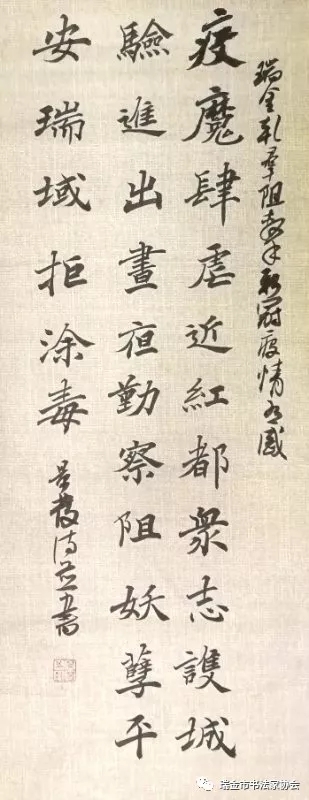 瑞金乾羣阻擊新冠疫情有感
疫魔肆虐近紅都衆志護城
驗進出晝夜勤察阻妖孽平
安瑞域拒涂毒
詩並書
瑞金市书法家协会